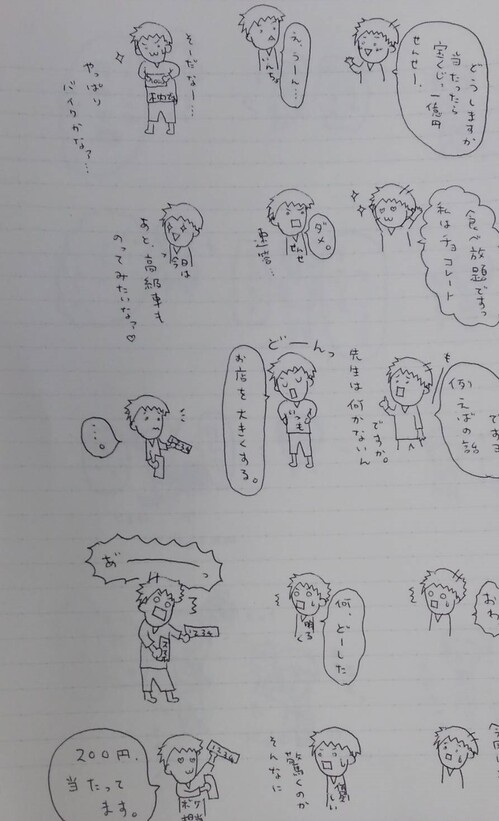 せんせー、
宝くじ、一億円
当たったら
どうしますか
え、うーん…
そーだなー…
やっぱり
バイクかなァ…
私はチョコレート
食べ放題ですっ
ダメ。
今日は
あと、高級車も
のってみたいなァ♡
例えばの話
先生は何かないん
ですか。
どーんっ
いつも
お店を大きくする。
…。
1234
おわ
何、どーした
明るく
あ゛ーーっ
1234
そんなに
驚くのか
楽しい
1234
ボケ
担当
200円、
当たって
ます。